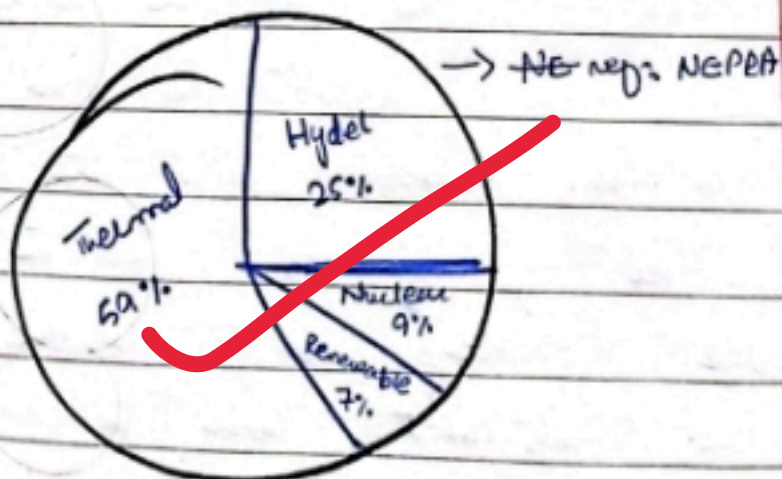 → NE ref: NEPRA
Hydel
25%
Thermal
59%
Nuclear
9%
Renewable
7%